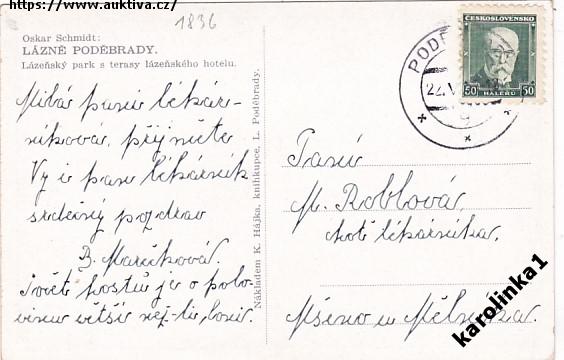 https://www.auktiva.cz/
1836
Oskar Schmidt:
LÁZNĚ PODĚBRADY.
Lázeňský park s terasy lázeňského hotelu.
Milá paní lékár-
níková, přijměte
Vy i pan lékárník
srdečný pozdrav
B. Maříková.
Počet hostů je o polo-
vinu větší než-li loni.
Nákladem K. Hájka, knihkupce, L. Poděbrady.
PODĚ
22. V
9
ČESKOSLOVENSKO
50 HALÉŘŮ 50
Paní
M. Roblová,
choť lékárníka,
Mšeno u Mělníka.
karolinka1